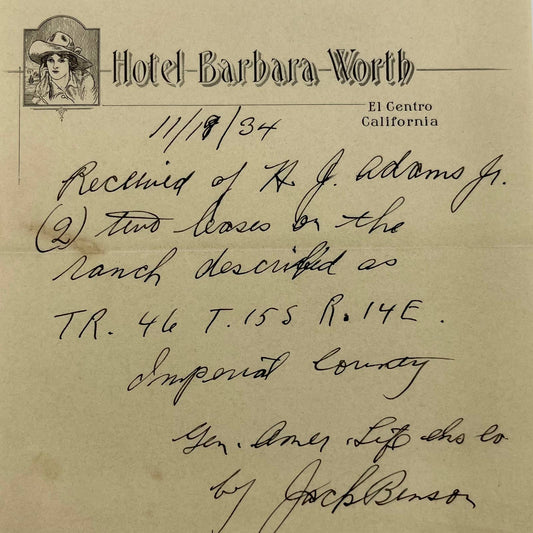 Hotel Barbara Worth
El Centro
California
11/19/34
Received of H. J. Adams Jr.
(2) two leases on the
ranch described as
TR. 46 T. 15 S R. 14 E.
Imperial County
Gen. Amer. Life Ins Co
by Jack Benson